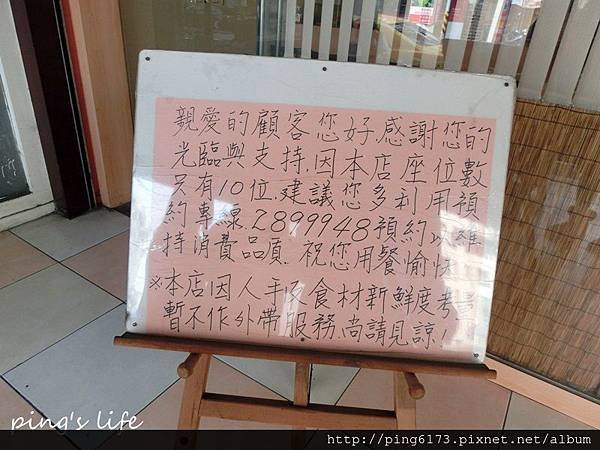 親愛的顧客您好,感謝您的
光臨與支持,因本店座位數
只有10位,建議您多利用預
約專線,2899948預約以維
持消費品質,祝您用餐愉快
※本店因人手及食材新鮮度考量
暫不作外帶服務,尚請見諒!
ping's life
http://ping6173.pixnet.net/album